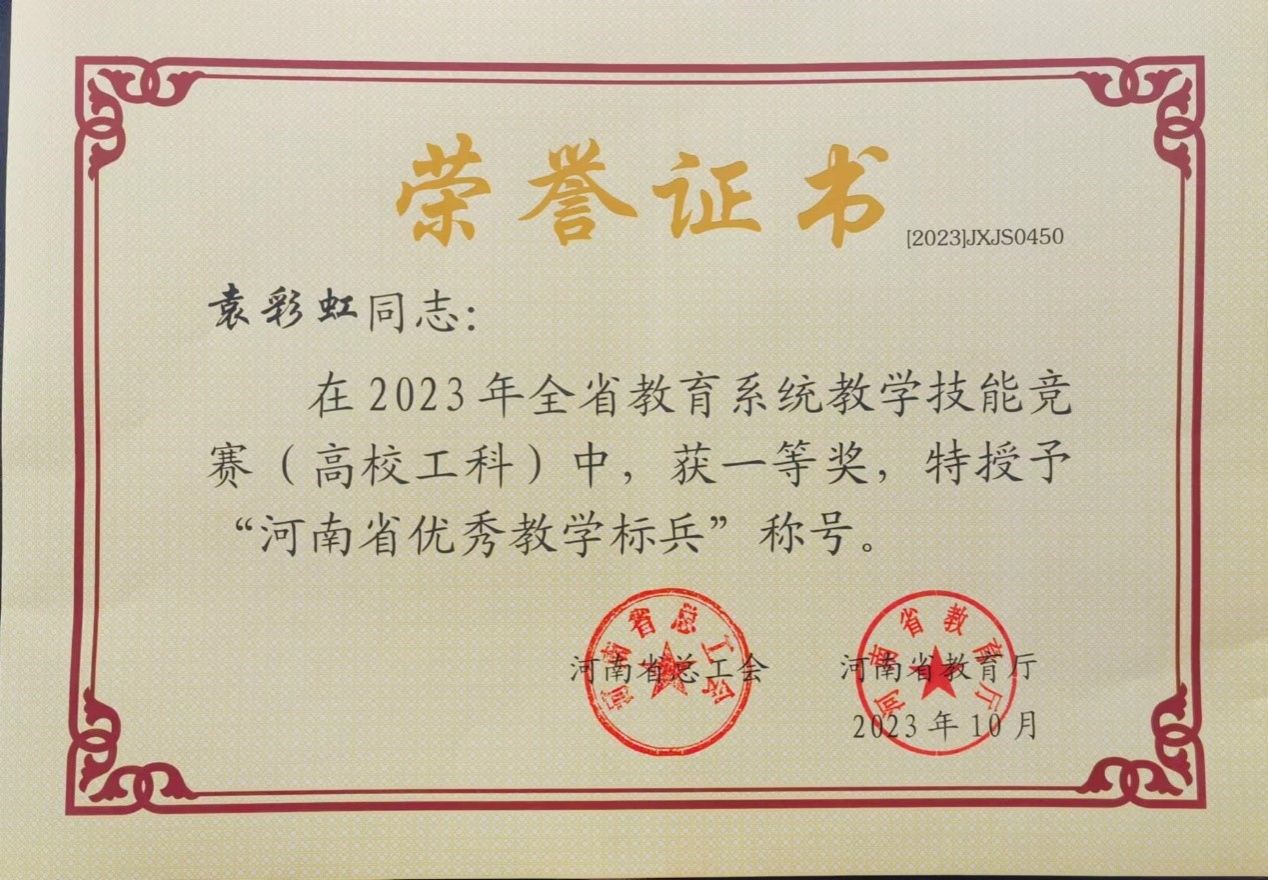 荣誉证书
[2023]JXJS0450
袁彩虹同志：
在2023年全省教育系统教学技能竞
赛（高校工科）中，获一等奖，特授予
“河南省优秀教学标兵”称号。
河南省总工会 河南省教育厅
2023年10月
河南省总工会
河南省教育厅